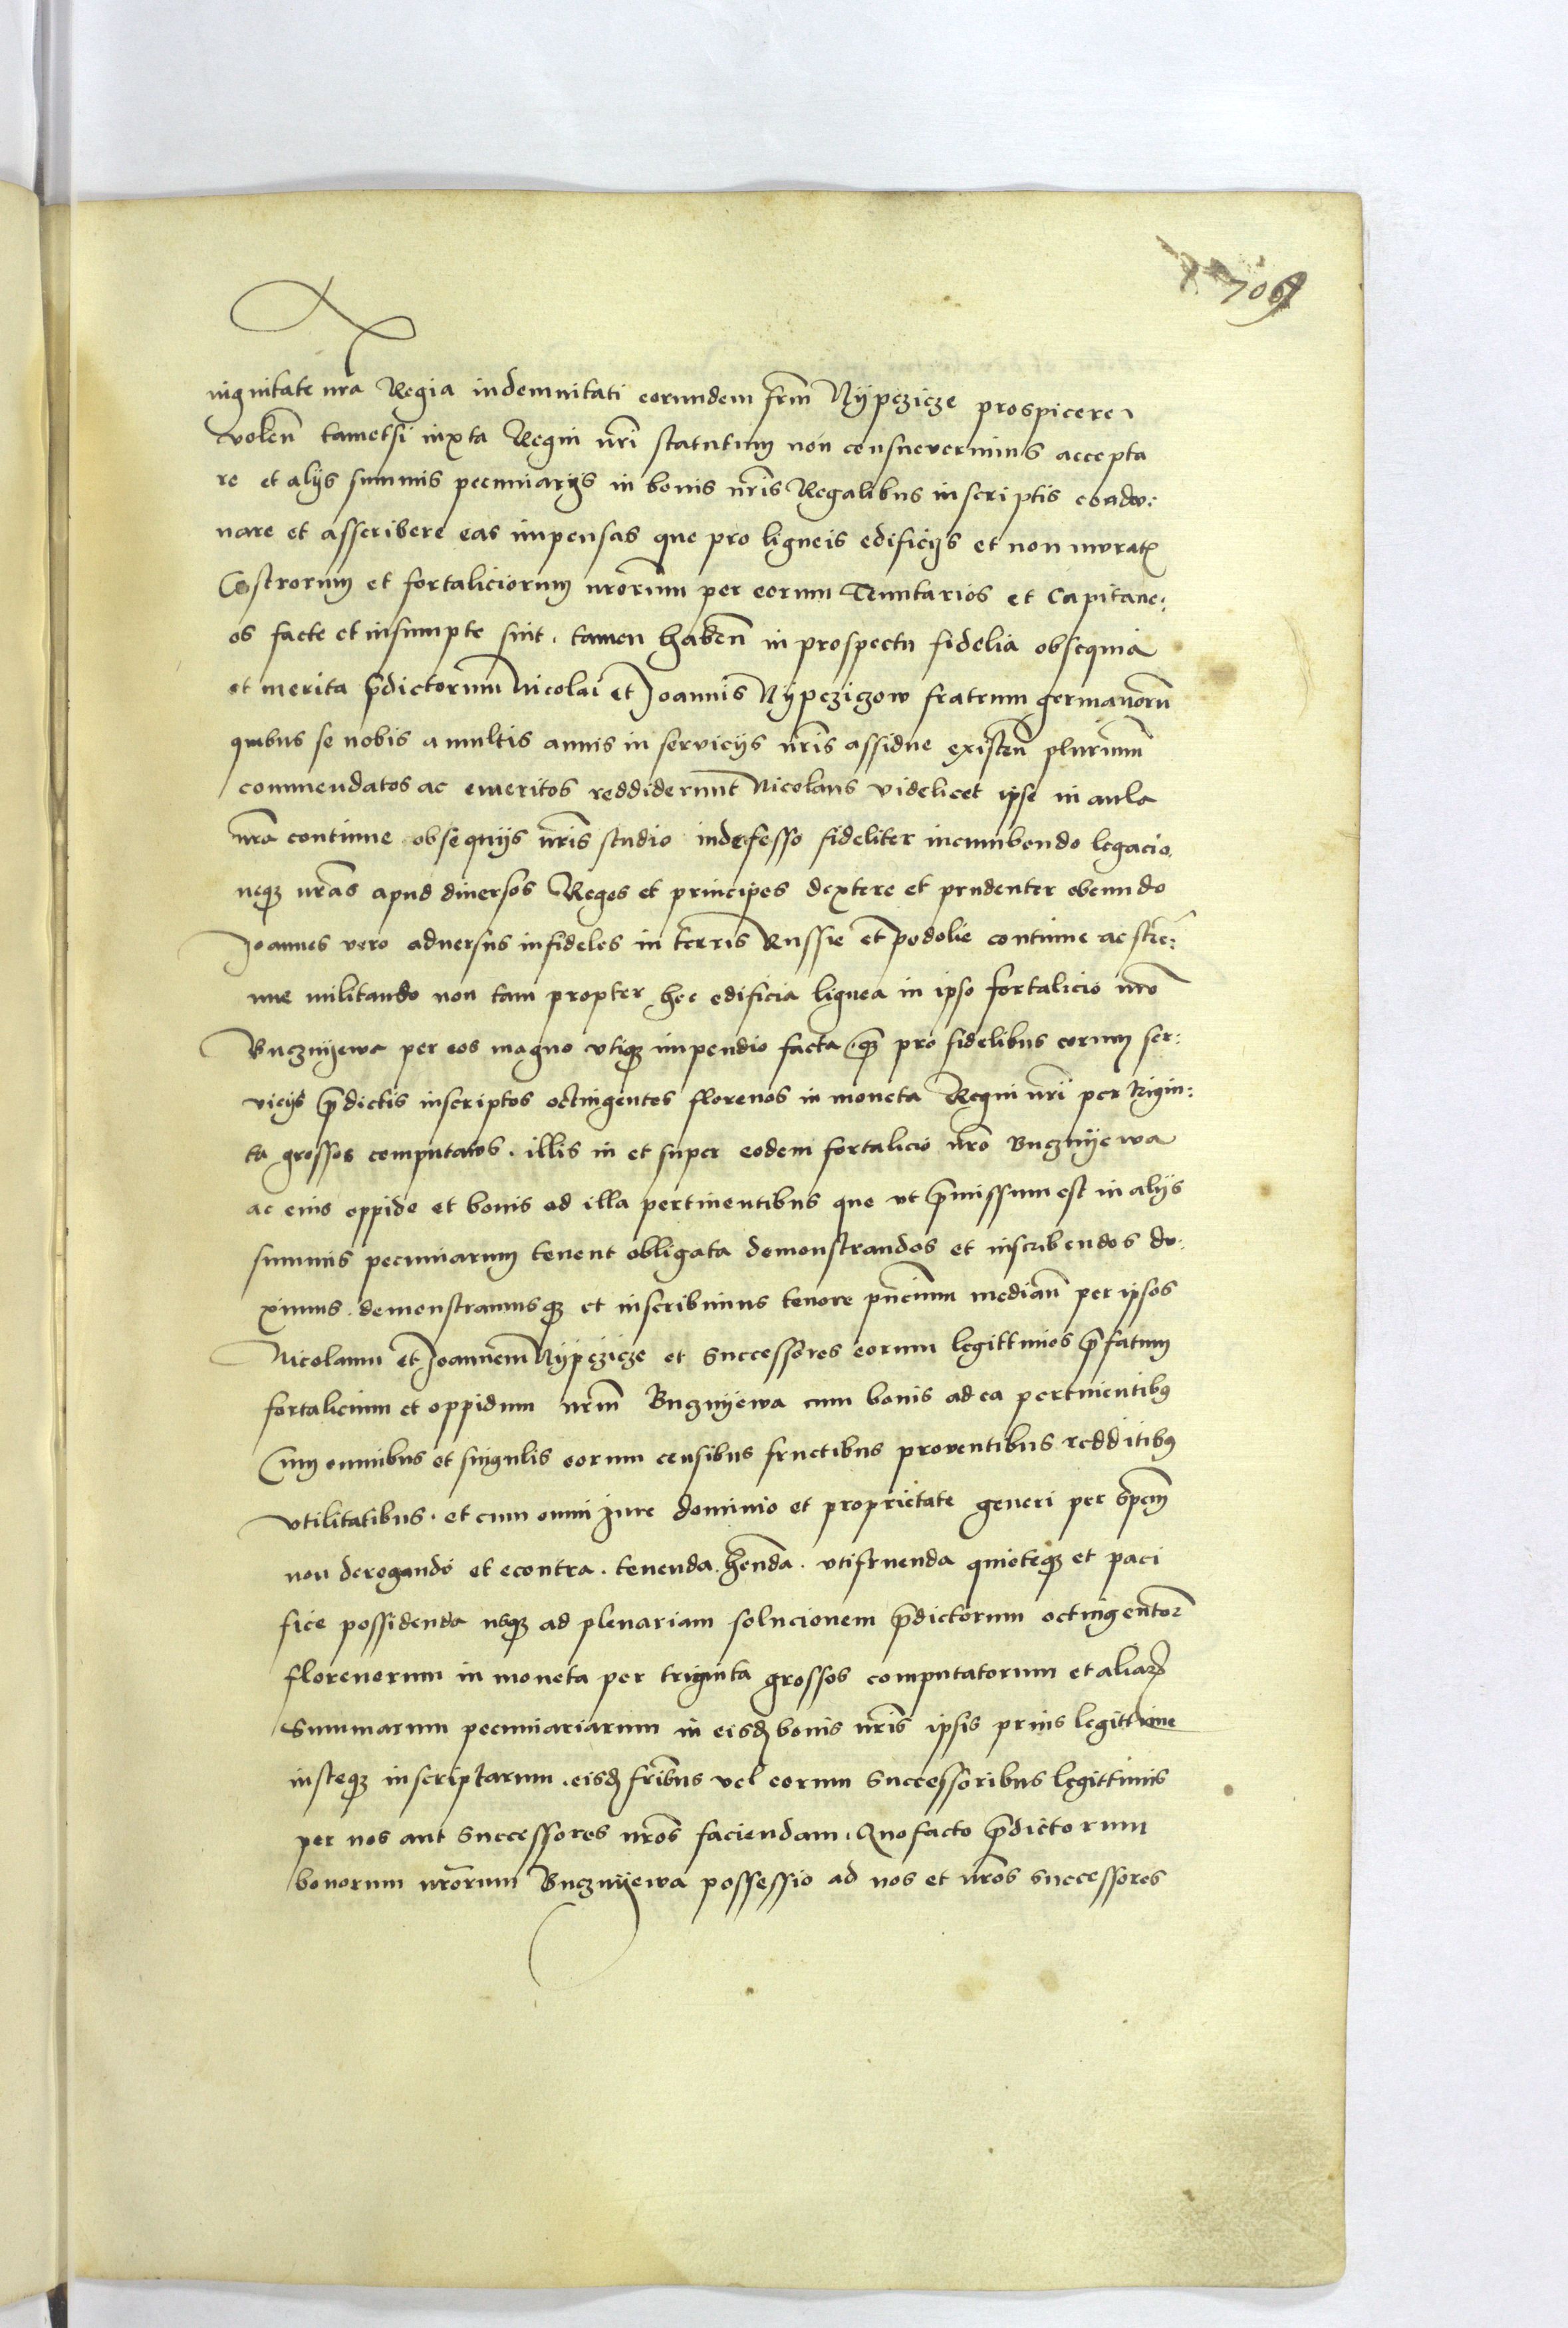 709
nignitate nra Regia indemnitati eorundem frm̄ Nypczicze prospicere
volen̄ tametsi iuxta Regni nr̄i statutum non consueverimus accepta
re et alijs summis pecuniarijs in bonis nr̄is Regalibus inscriptis coadu:
nare et asscribere eas impensas que pro ligneis edificijs et non murat
Castrorum et fortaliciorum nrōrum per eorum Tenutarios et Capitane:
os facte et insumpte sint. tamen haben̄ in prospectu fidelia obsequia
et merita p̄dictorum Nicolai et Joannis Nypcziczow fratrum germanorū
quibus se nobis a multis annis in servicijs nr̄is assidue existen̄ plurimum
commendatos ac emeritos reddiderunt Nicolaus videlicet ipse in aula
nrā continue obsequijs nr̄is studio indefesso fideliter incumbendo legacio
nesq nrās apud diuersos Reges et principes dextere et prudenter obeundo
Joannes vero aduersus infideles in terris Russie et podolie continue ac stre:
nue militando non tam propter hec edificia lignea in ipso fortalicio nrō
Buczniyewa per eos magno vtiq impendio facta. q̄ pro fidelibus eorum ser:
vicijs p̄dictis inscriptos octingentos florenos in moneta Regni nr̄i per trigin:
ta grossos computatos. illis in et super eodem fortalicio nrō Buczniyewa
ac eius oppido et bonis ad illa pertinentibus que ut p̄missum est in alijs
summis pecuniarum tenent obligata demonstrandos et inscribendos du:
ximus. demonstramusq et inscribimus tenore pn̄cium median̄ per ipsos
Nicolaum et Joannem Nypczicze et Successores eorum legittimos p̄fatum
fortalicium et oppidum nrm̄ Buczniyewa cum bonis ad ea pertinentibus
Cum omnibus et singulis eorum censibus fructibus proventibus redditibus
vtilitatibus. et cum omni Jure dominio et proprietate generi per spem̄
non derogando et econtra. tenenda. hēnda. vtifruenda quieteq et paci
fice possidenda usq ad plenariam solucionem p̄dictorum octingentor
florenorum in moneta per triginta grossos computatorum et aliar
Summarum pecuniariarum in eisd bonis nr̄is ipsis prius legittime
iusteq inscriptarum. eisd frībus vel eorum Successoribus legittimis
per nos aut Successores nrōs faciendam. Quo facto p̄dictorum
bonorum nrōrum Buczniyewa possessio ad nos et nrōs successores